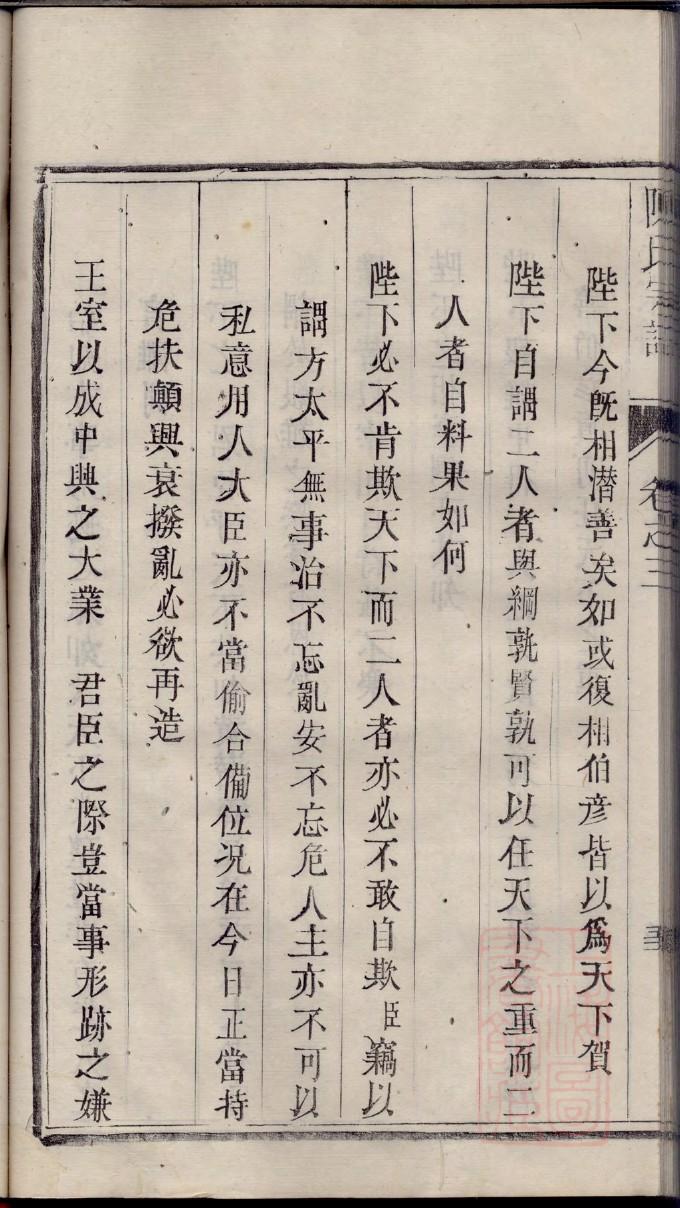 陳氏宗譜 卷之三
陛下今旣相潜善矣如或復相伯彥皆以爲天下賀
陛下自謂二人者與綱孰賢孰可以任天下之重而二
人者自料果如何
陛下必不肯欺天下而二人者亦必不敢自欺臣竊以
謂方太平無事治不忘亂安不忘危人主亦不可以
私意用人大臣亦不當偷合備位况在今日正當持
危扶顚興衰撥亂必欲再造
王室以成中興之大業 君臣之際豈當事形跡之嫌